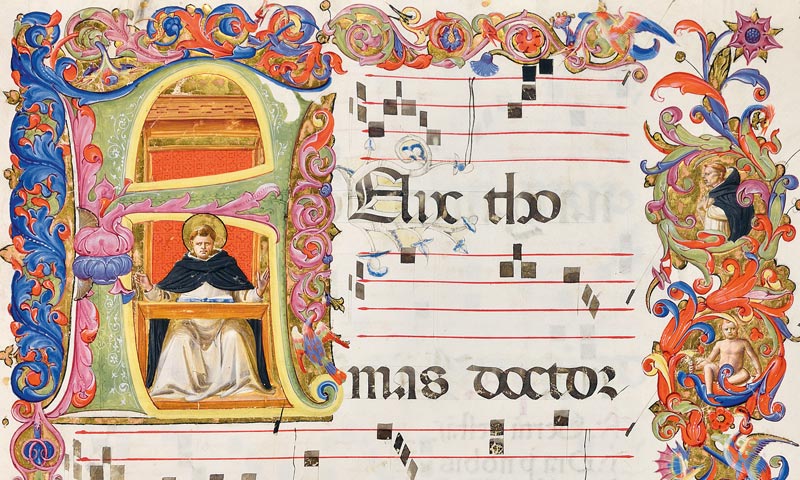 FElix tho
mas doctor